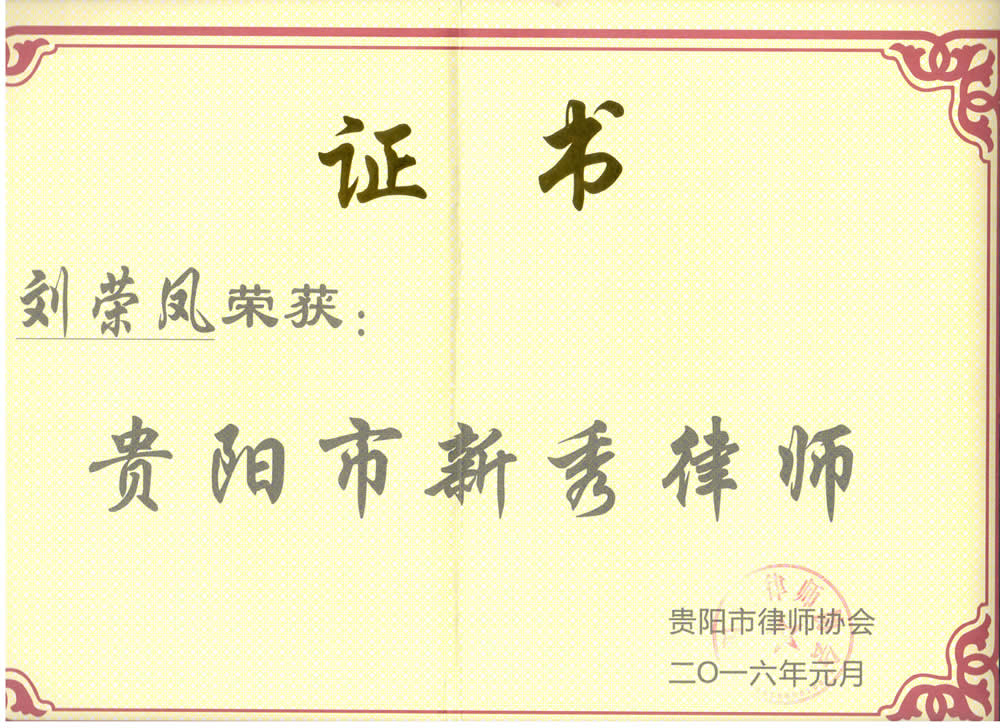 证书
刘荣凤荣获：
贵阳市新秀律师
律师
贵阳市律师协会
二〇一六年元月